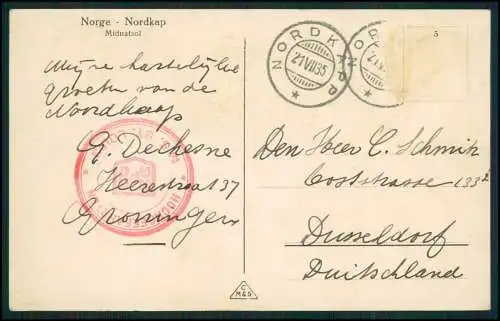 Norge - Nordkap
Midnatsol
Mijne hartelijke
groeten van de
Noordkaap
G. Dechesne
Heerestraat 37
Groningen
NORDKAPP
21 VII 35
NO
5
Den Heer C. Schmitz
Coststrasse 133²
Dusseldorf
Duitschland
C
M&S